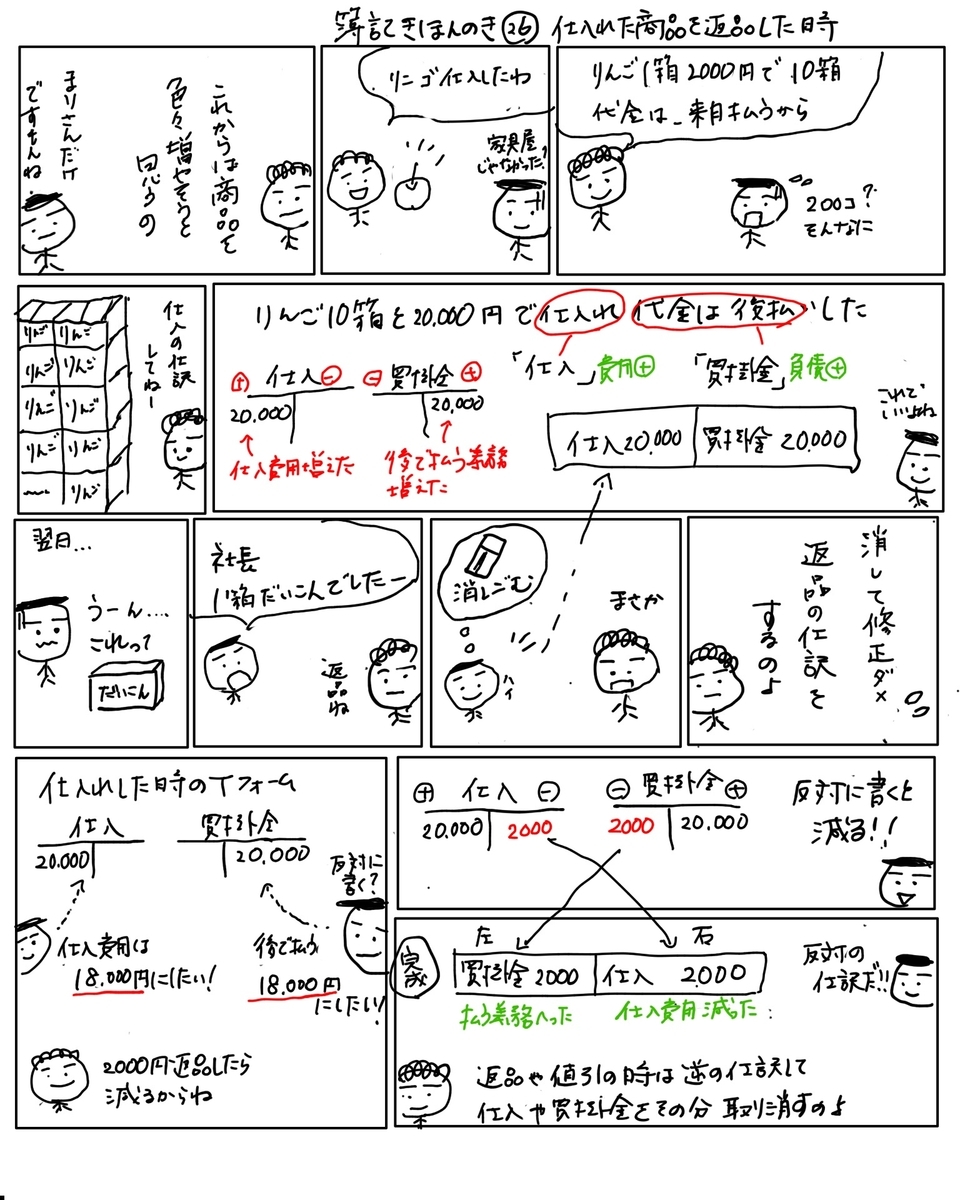 簿記きほんのき㉖ 仕入れた商品を返品した時
これからは商品を
色々増やそうと
思うの
まりさんだけ
ですもんね.
リンゴ仕入したわ
家具屋
じゃなかった?
りんご1箱2000円で10箱
代金は、来月払うから
200コ?
そんなに
りんご りんご
りんご りんご
りんご りんご
りんご りんご
りんご
仕入の仕訳
してねー
りんご10箱を20,000円で仕入れ 代金は後払いした
⊕ 仕入 ⊖
20,000
仕入費用増えた
⊖ 買掛金 ⊕
20,000
後で払う義務
増えた
「仕入」費用⊕
「買掛金」負債⊕
仕入20,000 買掛金 20,000
これで
いいよね
翌日...
うーん....
これって
だいこん
社長
1箱だいこんでしたー
返品ね
消しごむ
ハイ
まさか
消して修正ダメ
返品の仕訳を
するのよ
仕入れした時のTフォーム
仕入
20.000
買掛金
20,000
反対に
書く?
仕入費用は
18.000円にしたい!
後で払う
18.000円
にしたい!
2000円返品したら
減るからね
⊕ 仕入 ⊖
20.000 2000
⊖ 買掛金 ⊕
2000 20,000
反対に書くと
減る!!
完成
左 右
買掛金 2000 仕入 2,000
払う義務へった 仕入費用減った
反対の
仕訳だ!!
返品や値引の時は逆の仕訳して
仕入や買掛金をその分 取り消すのよ